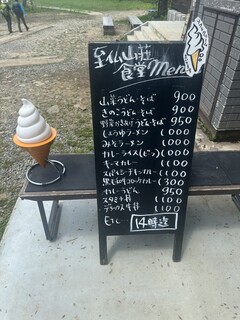 至仏山荘
食堂Menu
山菜うどん・そば 900
きのこうどん・そば 900
野菜かきあげうどん・そば 950
しょうゆラーメン 1000
みそラーメン 1000
カレーライス(ビーフ) 1000
キーマカレー 1100
スパイシーチキンカレー 1100
黒毛和牛コロッケカレー 1300
カレーうどん 950
スタミナ丼 1100
デラックス牛丼 1100
Etc 14時迄